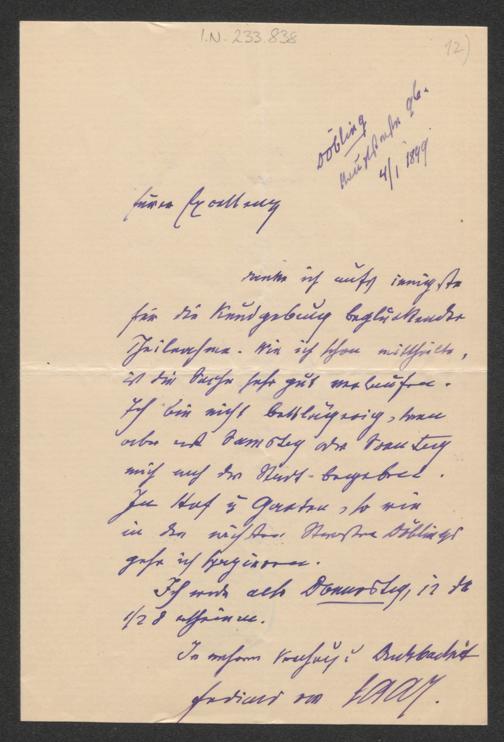 I.N. 233.838
12)
Döbling
Hauptstraße 96.
4/1 1899
Euere Excellenz
danke ich aufs innigste
für die Kundgebung beglückender
Theilnahme. Wie ich schon mittheilte,
ist die Sache sehr gut verlaufen.
Ich bin nicht bettlägerig, kann
aber erst Samstag oder Sonntag
mich nach der Stadt begeben.
In Hof u Garten, so wie
in den nächsten Strassen Döblings
gehe ich spazieren.
Ich werde also Donnerstag, 12 da
1/2 8 erscheinen.
In wahrer Verehrung u Dankbarkeit
Ferdinand von SAAR.